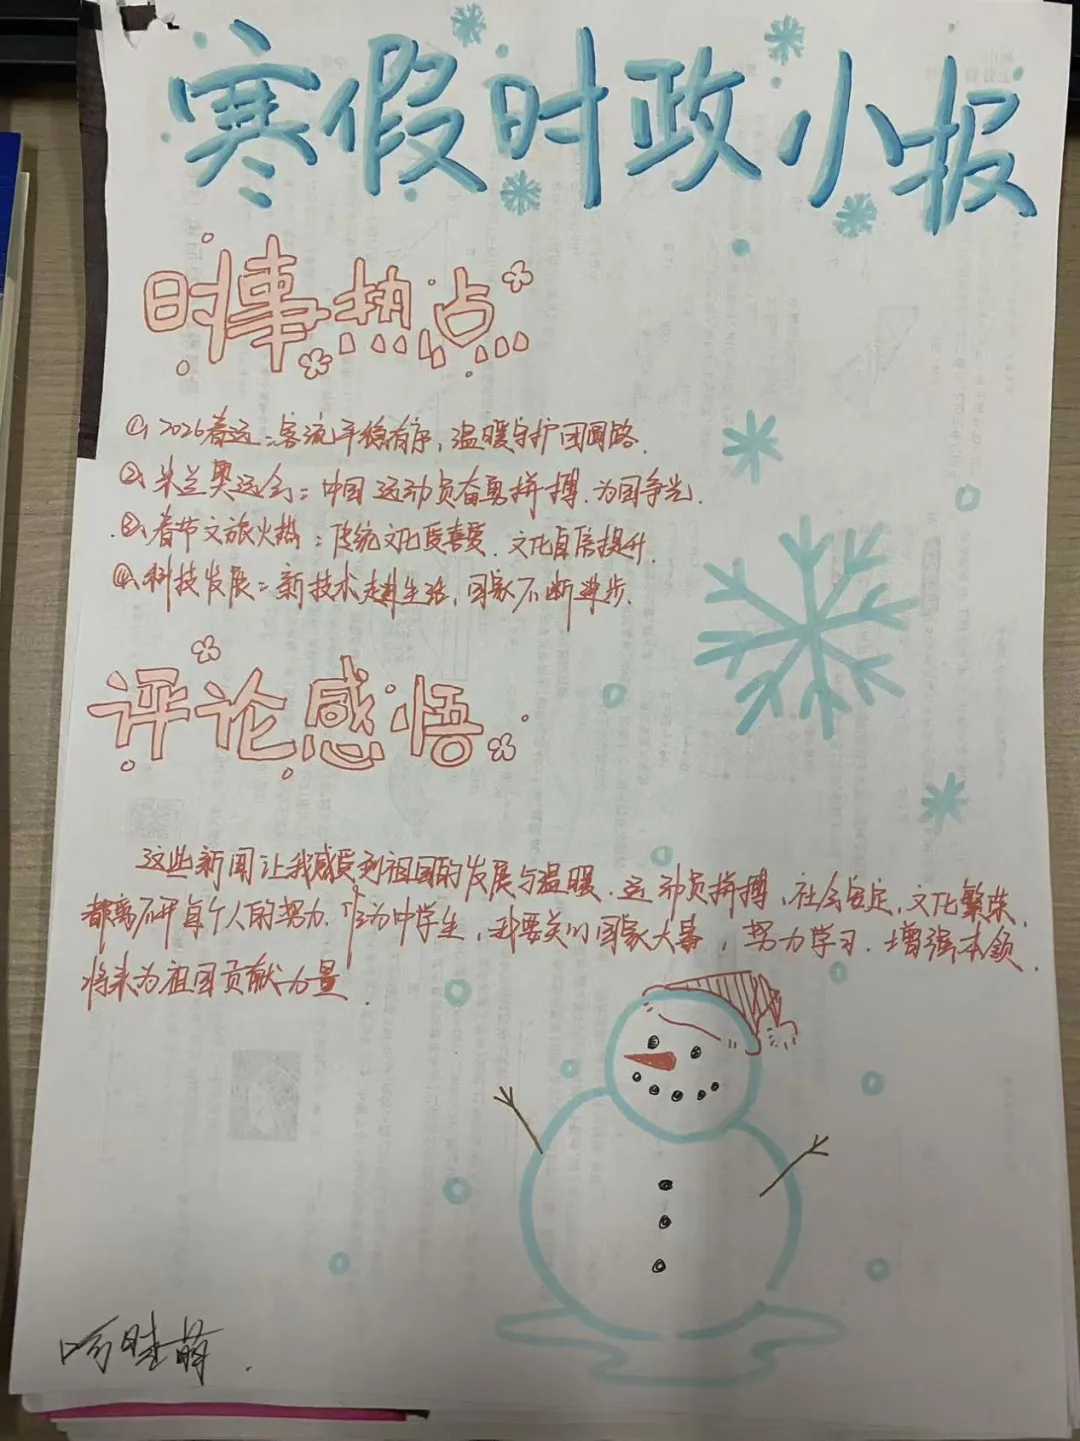 寒假时政小报
时事热点
①、2026春运：客流平稳有序，温暖守护团圆路.
②、米兰奥运会：中国运动员奋勇拼搏.为国争光.
③、春节文旅火热：传统文化受喜爱.文化自信提升.
④、科技发展：新技术走进生活，国家不断进步.
评论感悟
这些新闻让我感受到祖国的发展与温暖.运动员拼搏，社会安定，文化繁荣，
都离不开每个人的努力.作为中学生，我要关心国家大事，努力学习.增强本领，
将来为祖国贡献力量.